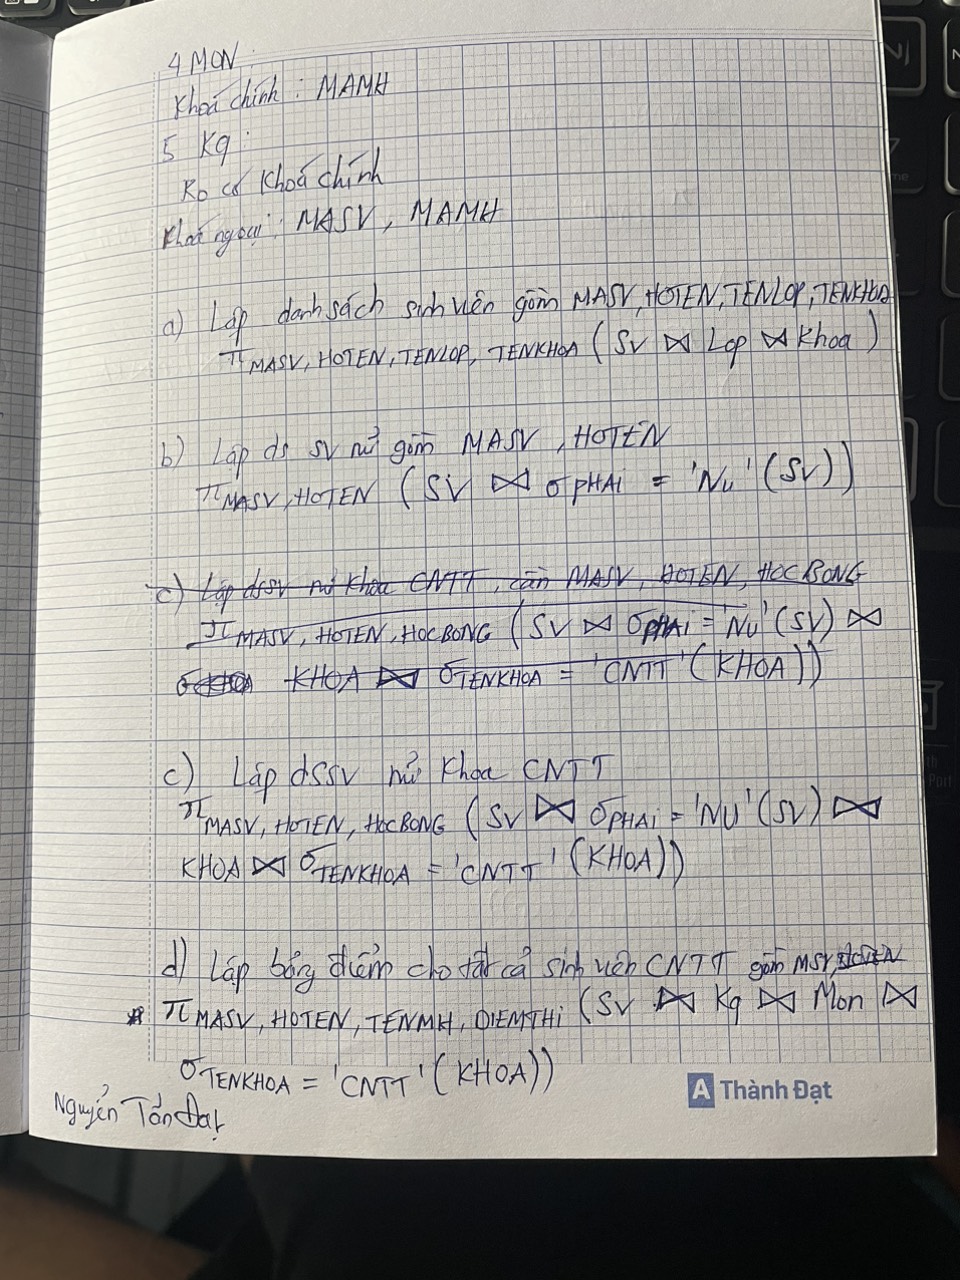 4 MON :
Khoá chính : MAMH
5 Kq :
Ko có khoá chính
Khoá ngoại : MASV, MAMH
a) Lập danh sách sinh viên gồm MASV, HOTEN, TENLOP, TENKHOA
π MASV, HOTEN, TENLOP, TENKHOA (SV ⋈ Lop ⋈ Khoa)
b) Lập ds SV nữ gồm MASV, HOTEN
π MASV, HOTEN (SV ⋈ σ PHAI = 'Nu' (SV))
c) Lập dssv nữ khoa CNTT, cần MASV, HOTEN, HOCBONG
π MASV, HOTEN, HOCBONG (SV ⋈ σ PHAI = 'Nu' (SV) ⋈
KHOA ⋈ σ TENKHOA = 'CNTT' (KHOA))
c) Lập dssv nữ Khoa CNTT
π MASV, HOTEN, HOCBONG (SV ⋈ σ PHAI = 'NU' (SV) ⋈
KHOA ⋈ σ TENKHOA = 'CNTT' (KHOA))
d) Lập bảng điểm cho tất cả sinh viên CNTT gồm MSV,
* π MASV, HOTEN, TENMH, DIEMTHI (SV ⋈ Kq ⋈ Mon ⋈
σ TENKHOA = 'CNTT' (KHOA))
A Thành Đạt
Nguyễn Tấn Đạt